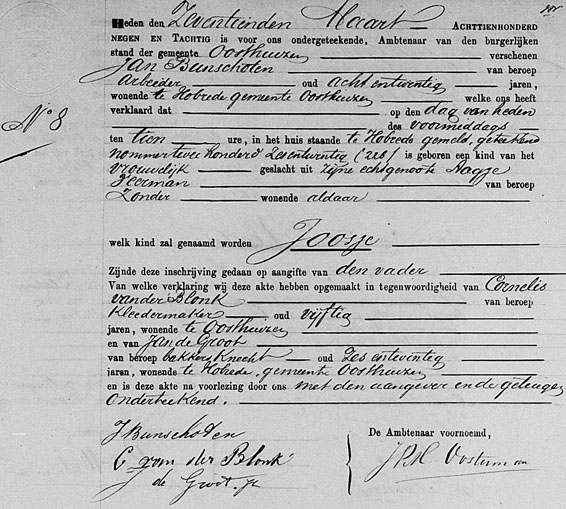 Heden den Zeventienden Maart ACHTTIENHONDERD
NEGEN EN TACHTIG is voor ons ondergeteekende, Ambtenaar van den burgerlijken
stand der gemeente Oosthuizen verschenen
Jan Bunschoten van beroep
Arbeider oud acht en twintig jaren,
wonende te Hobrede gemeente Oosthuizen welke ons heeft
verklaard dat op den dag van heden
No 8
des voormiddags
ten tien ure, in het huis staande te Hobrede gemeld, geteekend
nommer twee honderd zes en twintig (226) is geboren een kind van het
vrouwelijk geslacht uit zijne echtgenoote Aagje
Peerman van beroep
Zonder wonende aldaar
welk kind zal genaamd worden Joosje
Zijnde deze inschrijving gedaan op aangifte van den vader
Van welke verklaring wij deze akte hebben opgemaakt in tegenwoordigheid van Cornelis
van der Blonk van beroep
Kleedermaker oud vijftig
jaren, wonende te Oosthuizen
en van Jan de Groot
van beroep bakkersknecht oud Zes en twintig
jaren, wonende te Hobrede, gemeente Oosthuizen
en is deze akte na voorlezing door ons met den aangever en de getuigen
Onderteekend.
J Bunschoten
C van der Blonk
J de Groot Jz
De Ambtenaar voornoemd,
Oosterman